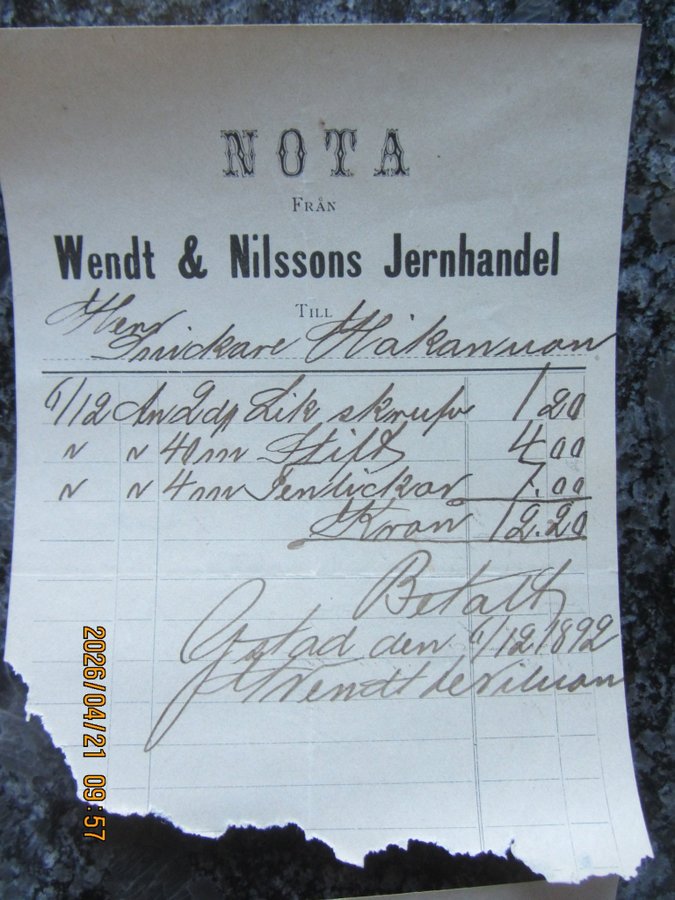 NOTA
FRÅN
Wendt & Nilssons Jernhandel
TILL
Herr
Snickare Håkansson
6/12 An 2 dp Lik skrufv 1 20
" " 40 m Stift 4.00
" " 4 m 7.00
Kron 12.20
Betalt
Ystad den 6/12 1892
Wendt & Nilsson
2026/04/21 09:57